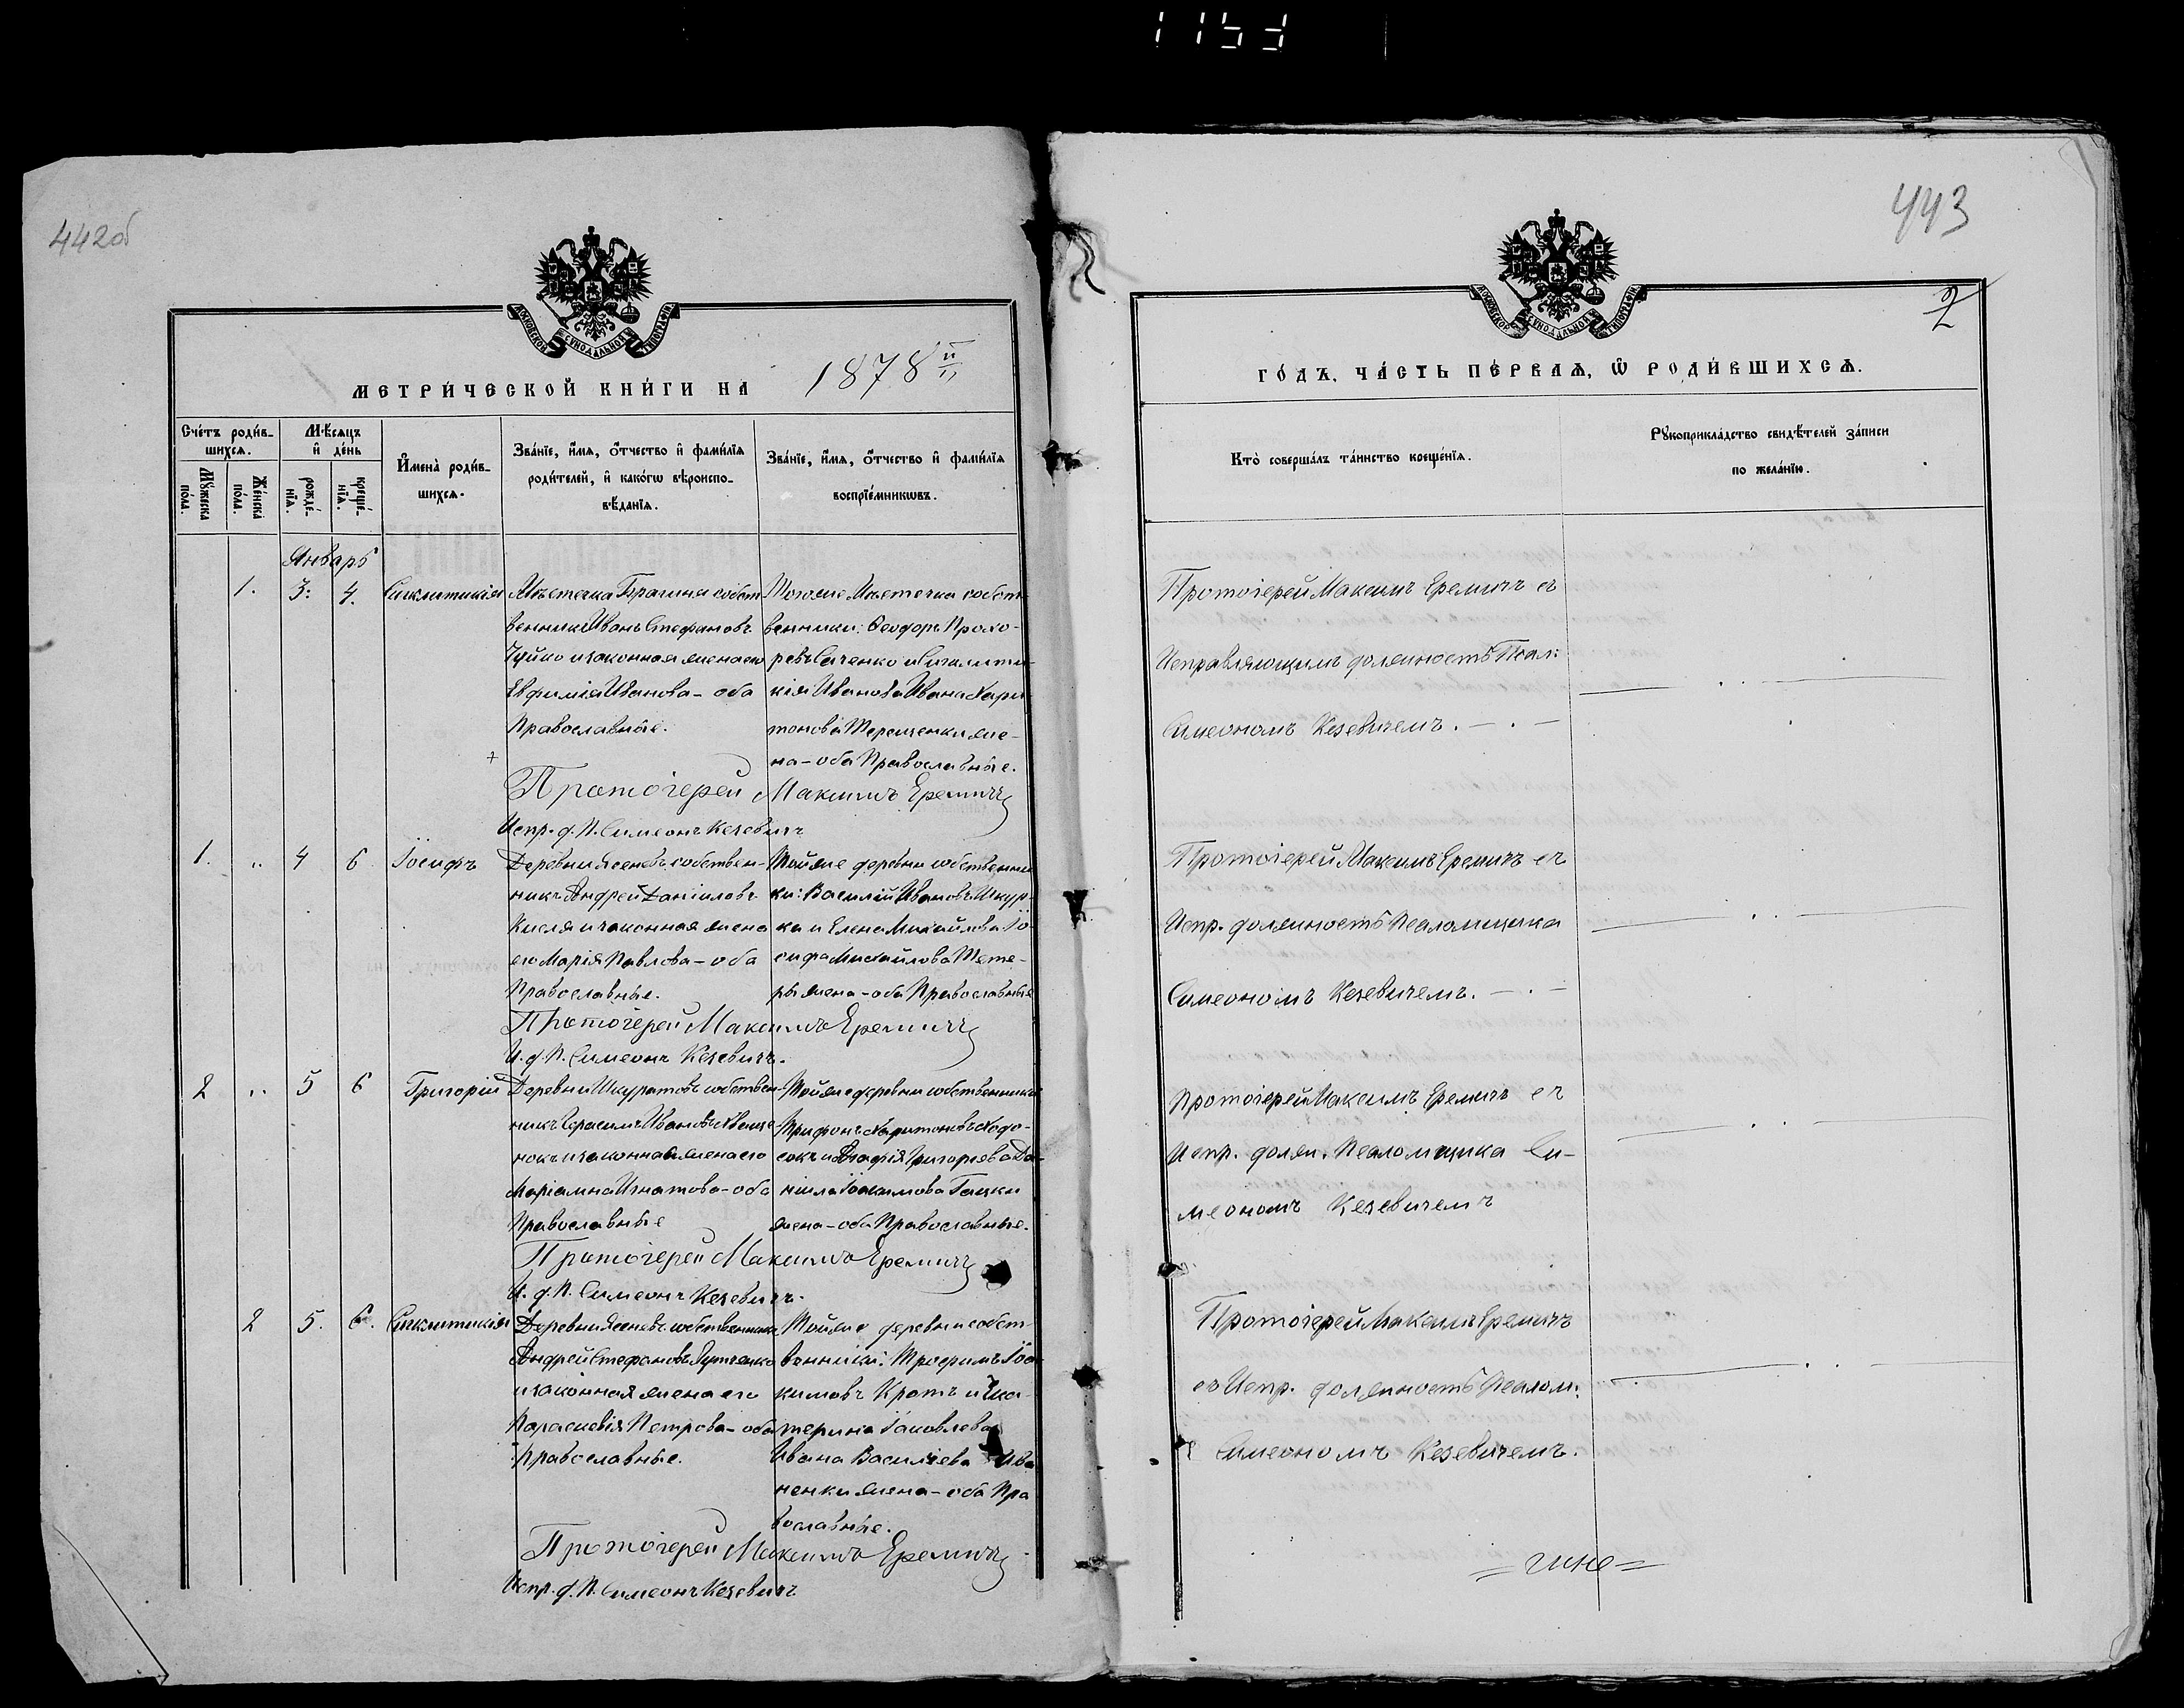 1153
442об
МОСКОВСКОЙ СѴНОДАЛЬНОЙ ТИПОГРАФІИ
МЕТРИ́ЧЕСКОЙ КНИ́ГИ НА 1878й
Сче́тъ роди́в-
шихсѧ.
Мꙋ́жеска по́ла.
Же́нска по́ла.
Мѣ́сѧцъ
и҆ де́нь
рожде́-
нїѧ.
креще́-
нїѧ.
И҆мена̀ роди́в-
шихсѧ.
Зва́нїе, и҆́мѧ, ѻ҆́тчество и҆ фами́лїѧ
роди́телей, и҆ како́гѡ вѣроиспо-
вѣ́данїѧ.
Зва́нїе, и҆́мѧ, ѻ҆́тчество и҆ фами́лїѧ
воспрїе́мникѡвъ.
Январь
1. 3. 4. Синклитикія
Мѣстечка Брагиня собст
венникъ Иванъ Стефановъ
Чуйко и законная жена его
Евфимія Иванова - оба
Православные.
Тогоже Мѣстечка собст
венники: Ѳеодоръ Прохо-
ревъ Саченко и Сигклити-
кія Иванова Ивана Хари
тонова Терещенки же-
на - оба Православные.
Протоіерей Максимъ Еремичъ
Испр. д. П. Симеонъ Кезевичъ
1. " 4 6 Іосифъ
Деревни Ясеневъ собствен-
никъ Андрей Даніиловъ
Кисля и законная жена
его Марія Павлова - оба
Православные.
Тойже деревни собственни
ки: Василій Ивановъ Шкур-
ка и Елена Михайлова Іо-
сифа Михайлова Тете-
ры жена - оба Православные
Протоіерей Максимъ Еремичъ
И. д. П. Симеонъ Кезевичъ.
2 " 5 6 Григорій
Деревни Шкуратовъ собствен-
никъ Герасимъ Ивановъ Кваще-
нокъ и законная жена его
Маріамна Игнатова - оба
Православные
Тойже деревни собственники
Трифонъ Харитоновъ Ходо-
сокъ и Агафія Григорьева Да-
ніила Іоакимова Гацки
жена - оба Православные.
Протоіерей Максимъ Еремичъ
И. д. П. Симеонъ Кезевичъ.
2 5. 6. Сигклитикія
Деревни Ясеневъ собственника
Андрей Стефановъ Лутченко
и законная жена его
Параскевія Петрова - оба
Православные.
Тойже деревни собст
венники: Трофимъ Іоа
кимовъ Кротъ и Ека-
терина Іаковлева
Ивана Василіева Ива
ненки жена - оба Пра
вославные.
Протоіерей Максимъ Еремичъ
Испр. д. П. Симеонъ Кезевичъ
443
2
МОСКОВСКОЙ СѴНОДАЛЬНОЙ ТИПОГРАФІИ
ГО́ДЪ, ЧА́СТЬ ПЕ́РВАѦ, Ѡ҆ РОДИ́ВШИХСѦ.
Кто̀ соверша́лъ та́инство креще́нїѧ.
Рꙋкоприкла́дство свидѣ́телей за́писи
по жела́нїю.
Протоіерей Максимъ Еремичъ съ
Исправляющимъ должность Псал:
Симеономъ Кезевичемъ. - . -
Протоіерей Максимъ Еремичъ съ
Испр. должность Псаломщика
Симеономъ Кезевичемъ. - . -
Протоіерей Максимъ Еремичъ съ
Испр. должн. Псаломщика Си-
меономъ Кезевичемъ
Протоіерей Максимъ Еремичъ
съ Испр. должность Псалом:
Симеономъ Кезевичемъ.